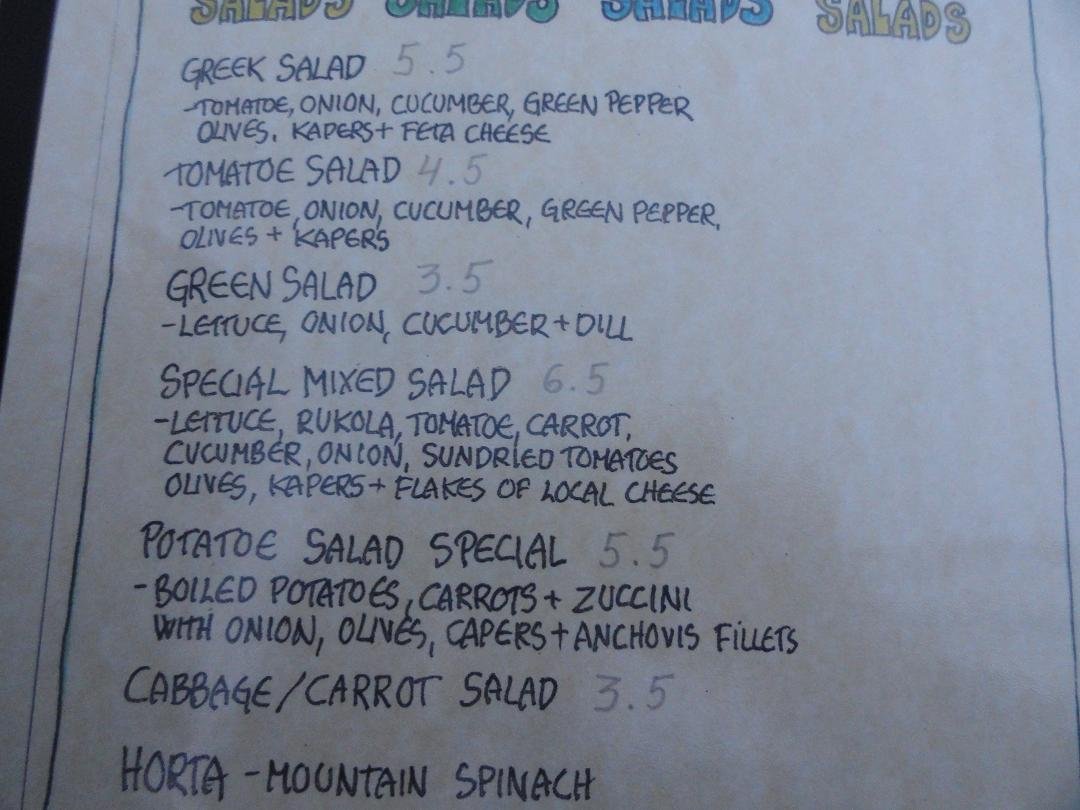 SALADS SALADS SALADS SALADS
GREEK SALAD 5.5
-TOMATOE, ONION, CUCUMBER, GREEN PEPPER
OLIVES, KAPERS + FETA CHEESE
TOMATOE SALAD 4.5
-TOMATOE, ONION, CUCUMBER, GREEN PEPPER,
OLIVES + KAPERS
GREEN SALAD 3.5
-LETTUCE, ONION, CUCUMBER + DILL
SPECIAL MIXED SALAD 6.5
-LETTUCE, RUKOLA, TOMATOE, CARROT,
CUCUMBER, ONION, SUNDRIED TOMATOES
OLIVES, KAPERS + FLAKES OF LOCAL CHEESE
POTATOE SALAD SPECIAL 5.5
-BOILED POTATOES, CARROTS + ZUCCINI
WITH ONION, OLIVES, CAPERS + ANCHOVIS FILLETS
CABBAGE/CARROT SALAD 3.5
HORTA - MOUNTAIN SPINACH